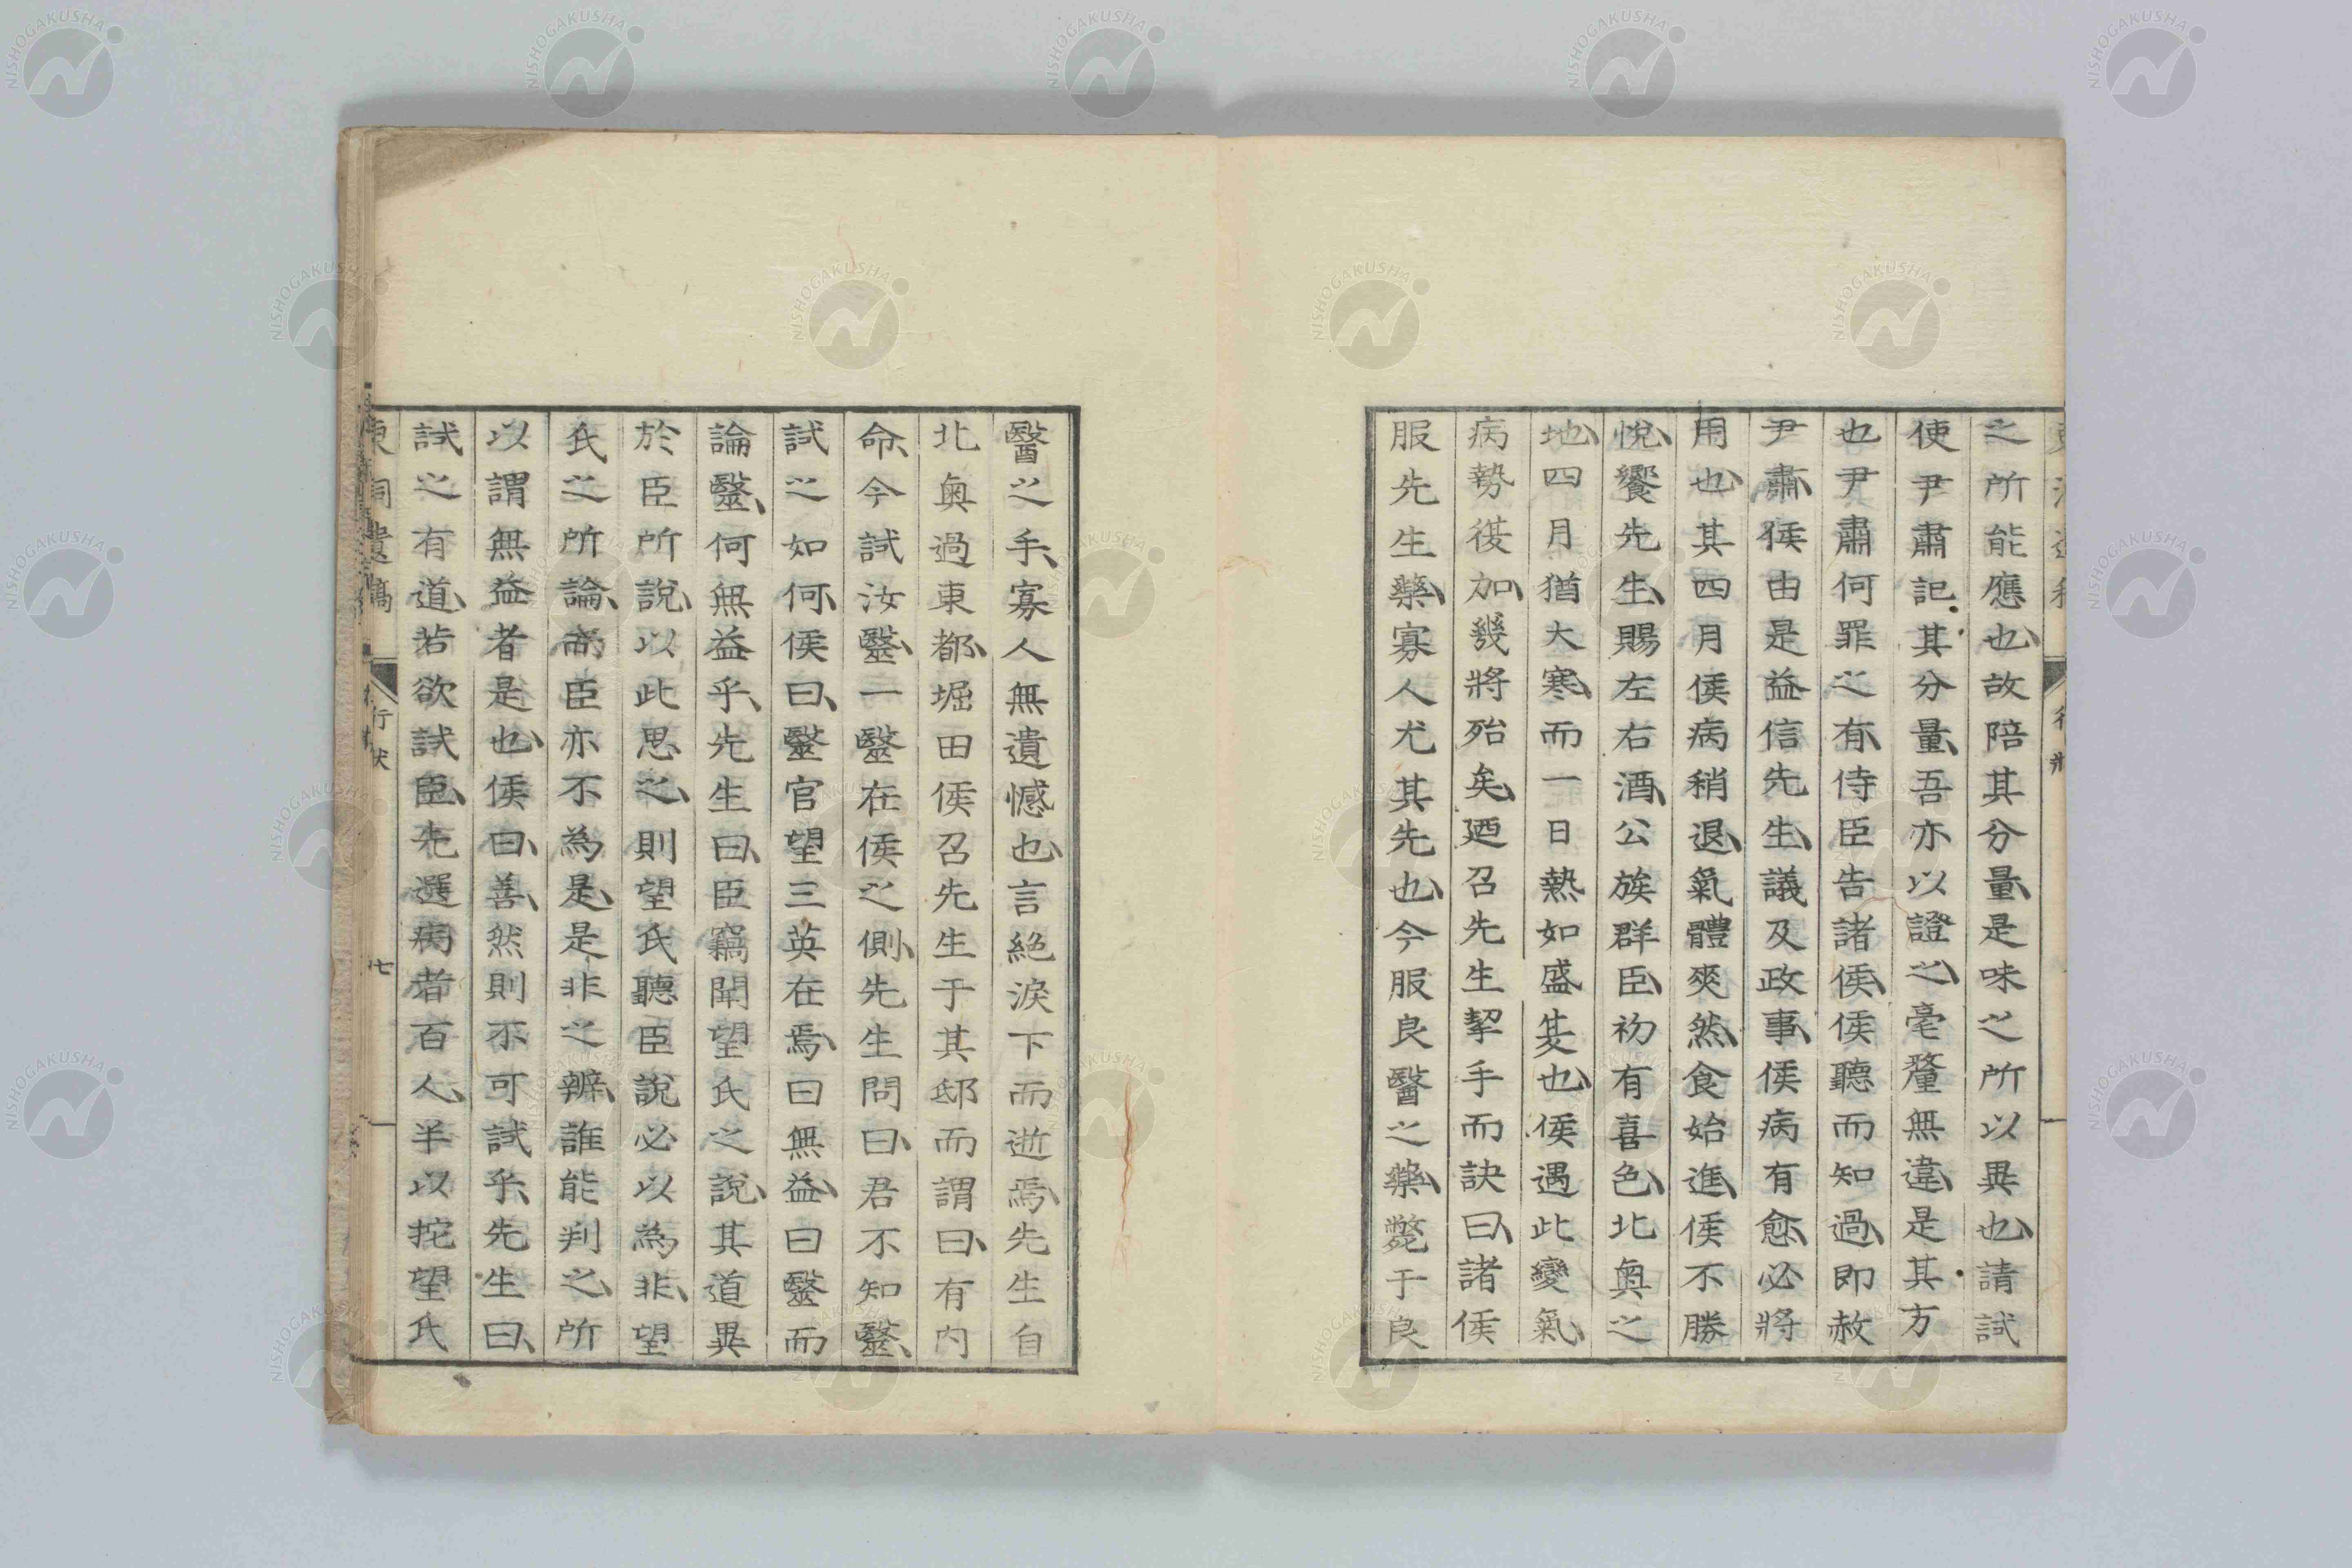 之所能應也、故陪其分量、是味之所以異也、請試
使尹肅記其分量、吾亦以證之、毫釐無違、是其方
也尹肅何罪之有、侍臣告諸侯、侯聽而知過、即赦
尹肅、侯由是益信先生、議及政事、侯病有愈、必將
用也、其四月侯病稍退、氣體爽然、食始進、侯不勝
悅、饗先生、賜左右酒、公族群臣、初有喜色、北奥之
地、四月猶大寒、而一日熱如盛夏也、侯遇此變氣、
病勢復加、幾將殆矣、廼召先生挈手而訣曰、諸侯
服先生藥、寡人尤其先也、今服良醫之藥、斃于良
醫之手、寡人無遺憾也、言絕淚下而逝焉、先生自
北奥過東都、堀田侯召先生于其邸而謂曰、有内
命、今試汝毉、一毉在侯之側、先生問曰、君不知毉、
試之如何、侯曰、毉官望三英在焉、曰無益、曰毉而
論毉、何無益乎、先生曰、臣竊聞望氏之說、其道異
於臣所說、以此思之、則望氏聽臣說必以為非、望
氏之所論、而臣亦不為是、是非之辨、誰能判之、所
以謂無益者是也、侯曰、善、然則不可試乎、先生曰、
試之有道、若欲試臣、先選病者百人、半以挓望氏
東洞遺稿
行狀
七